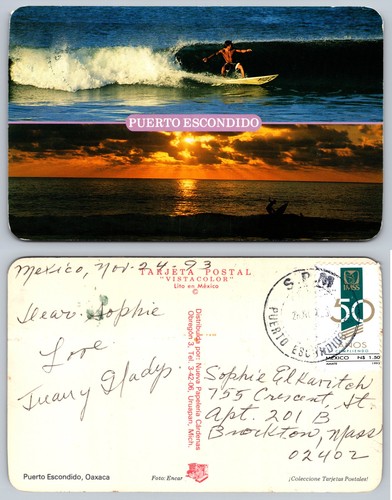 PUERTO ESCONDIDO
Mexico, Nov-24-93
TARJETA POSTAL
"VISTACOLOR"
Lito en México
©
Dear Sophie
Love
Gladys
Distribuida por: Nueva Papelería Cárdenas
Obregón 3, Tel. 3-42-06, Uruapan, Mich.
S.P.M
PUERTO ESCONDIDO
IMSS
50
AÑOS
MEXICO N$ 1.50
Sophie Elkavitch
755 Crescent, St.
Apt. 201 B
Brockton, Mass
02402
Puerto Escondido, Oaxaca
Foto: Encar
¡Coleccione Tarjetas Postales!